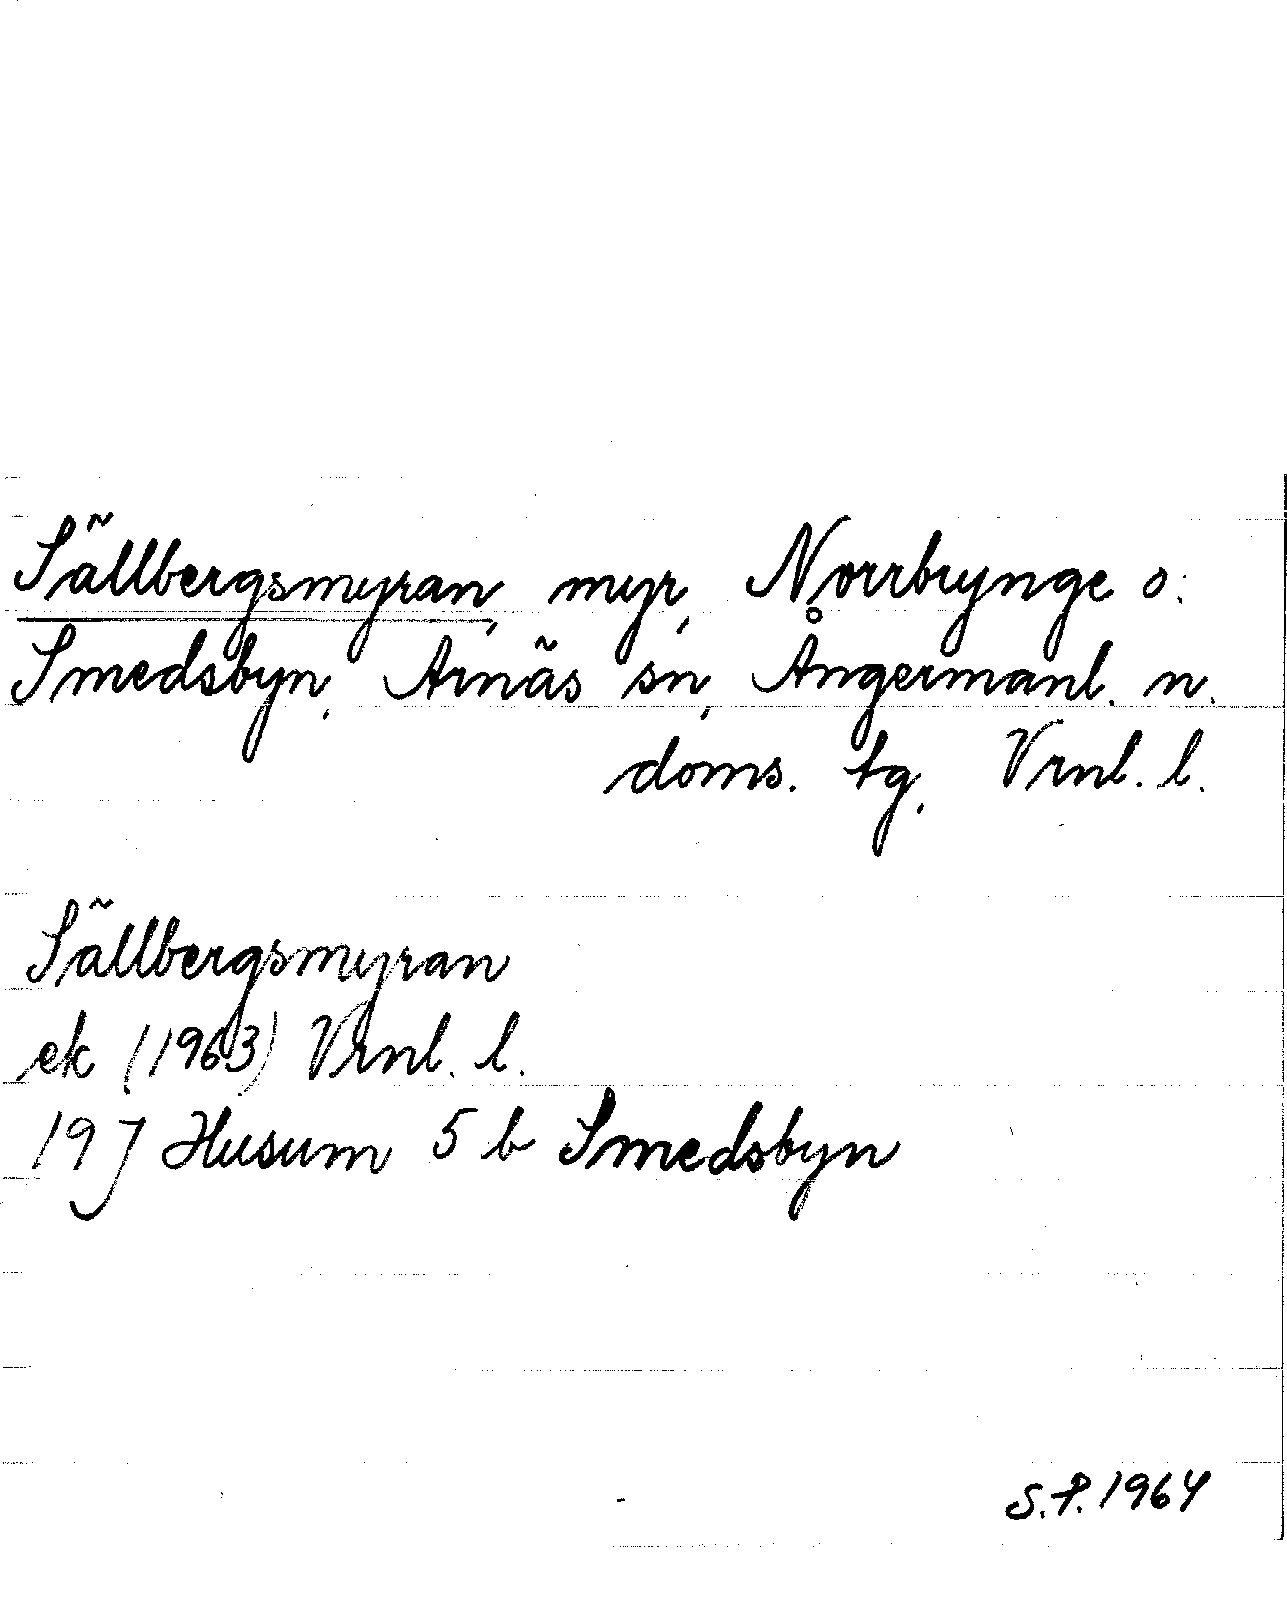 Sällbergsmyran, myr, Norrbrynge o.
Smedsbyn, Arnäs sn, Ångermanl. n.
doms. tg, Vrnl. l.
Sällbergsmyran
ek (1963) Vrnl. l.
19 J Husum 5 b Smedsbyn
S.P. 1964